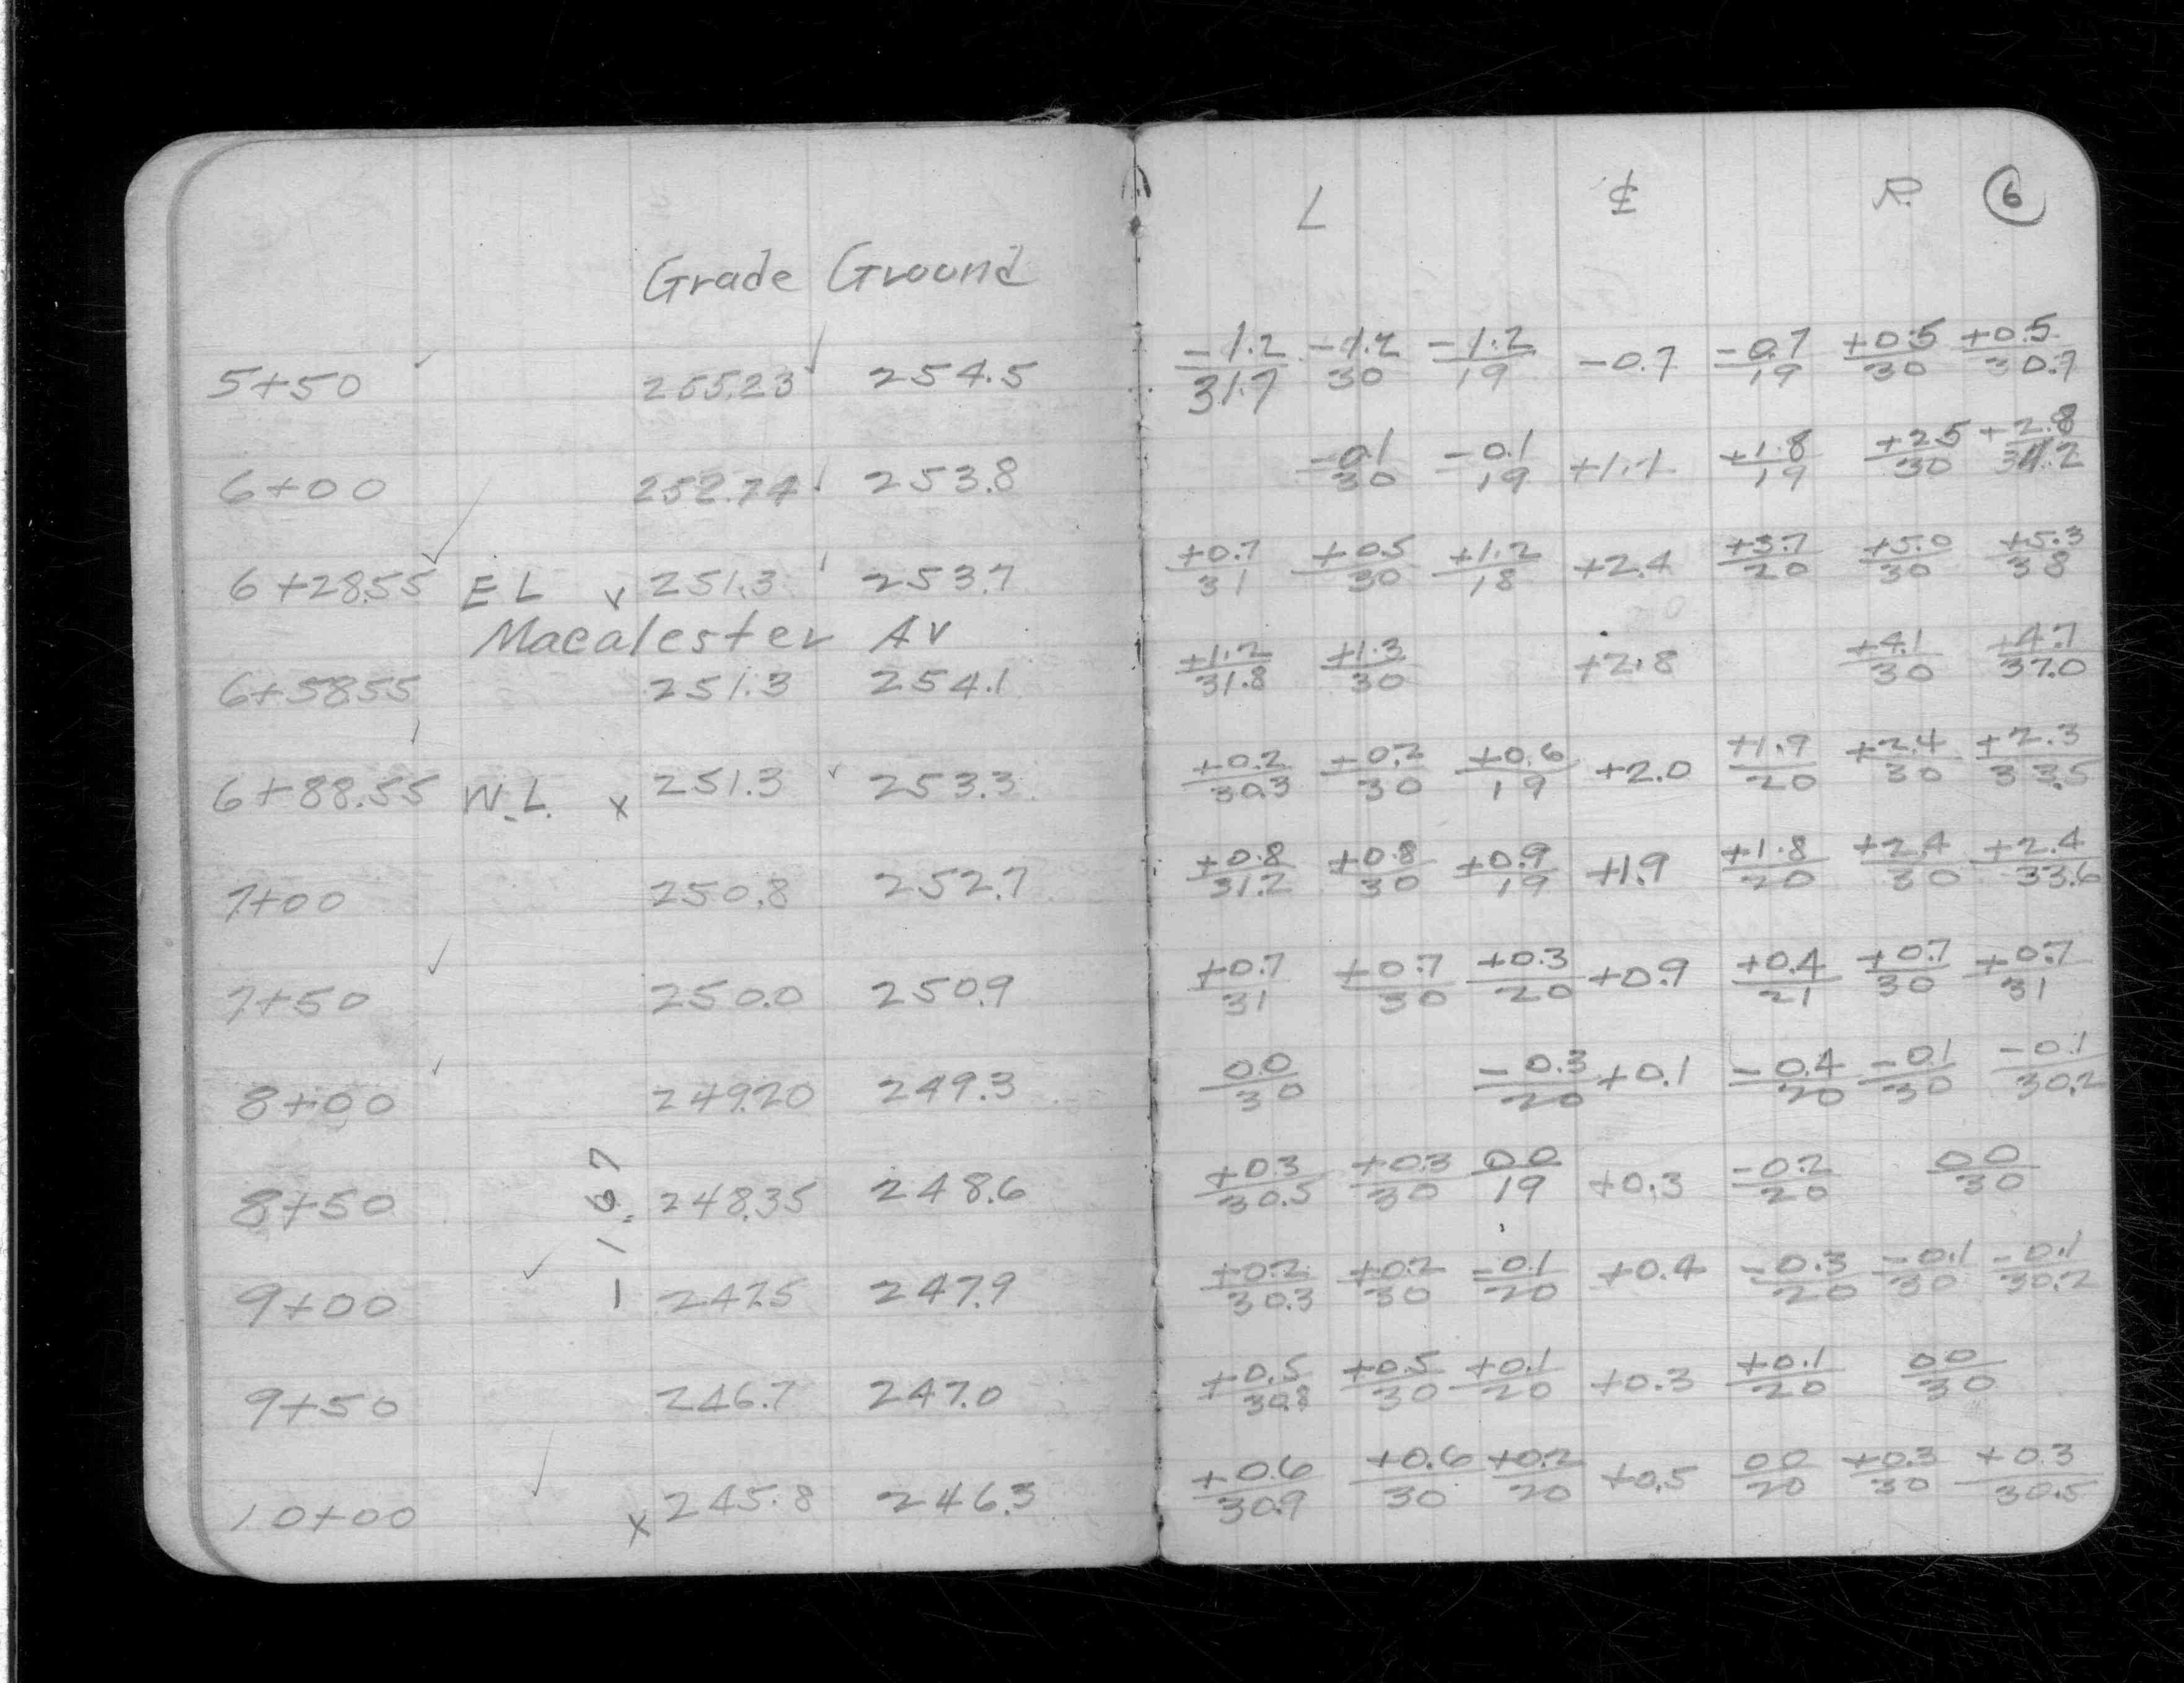 L ℄ R. 6
Grade Ground
5+50 255.23 254.5 -1.2/31.7 -1.2/30 -1.2/19 -0.7 -0.7/19 +0.5/30 +0.5/30.7
6+00 252.74 253.8 -0.1/30 -0.1/19 +1.1 +1.8/19 +2.5/30 +2.8/34.2
6+28.55 EL 251.3 253.7 +0.7/31 +0.5/30 +1.2/18 +2.4 +3.7/20 +5.0/30 +5.3/38
Macalester Av
6+58.55 251.3 254.1 +1.2/31.8 +1.3/30 +2.8 +4.1/30 +4.7/37.0
6+88.55 W.L. x 251.3 253.3 +0.2/30.3 +0.2/30 +0.6/19 +2.0 +1.9/20 +2.4/30 +2.3/33.5
7+00 250.8 252.7 +0.8/31.2 +0.8/30 +0.9/19 +1.9 +1.8/20 +2.4/30 +2.4/33.6
7+50 250.0 250.9 +0.7/31 +0.7/30 +0.3/20 +0.9 +0.4/21 +0.7/30 +0.7/31
8+00 249.20 249.3 0.0/30 -0.3/20 +0.1 -0.4/20 -0.1/30 -0.1/30.2
8+50 248.35 248.6 +0.3/30.5 +0.3/30 0.0/19 +0.3 -0.2/20 0.0/30
-1.67
9+00 247.5 247.9 +0.2/30.3 +0.2/30 -0.1/20 +0.4 -0.3/20 -0.1/30 -0.1/30.2
9+50 246.7 247.0 +0.5/30.8 +0.5/30 +0.1/20 +0.3 +0.1/20 0.0/30
10+00 x 245.8 246.3 +0.6/30.9 +0.6/30 +0.2/20 +0.5 0.0/20 +0.3/30 +0.3/30.5